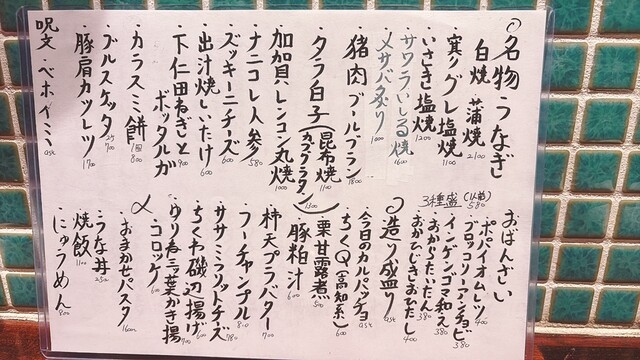 ◎名物・うなぎ
白焼 蒲焼 2100
・寒グレ塩焼 1100
・いさき塩焼 1200
・サワラいしる焼 1600
・〆サバ炙り 1000
・猪肉ブールブラン 1800
・タラ白子(昆布焼 1100
カブグラタン 1100)
・加賀レンコン丸焼 1000
・ナニコレ人参 580
・ズッキーニチーズ 600
・出汁焼しいたけ 600
・下仁田ねぎと 900
ボッタルガ
・カラスミ餅 1個 800
・ブルスケッタ 2ケ 700
・豚肩カツレツ 1700
呪文・ベホイミ ask
おばんざい
3種盛(1人前) 580
・ポパイオムレツ 400
・ブロッコリーアンチョビ 380
・インゲンゴマ和え 380
・おからたいたん 380
・おかひじきとおひたし 400
◎造り盛り ask
・今日のカルパッチョ ask
・ちくQ(高知系) 600
・栗甘露煮 500
・豚粕汁 600
・柿天プラバター 700
・フーチャンプル 810
・ササミミラノットチーズ 780
・ちくわ磯辺揚げ 600
・ゆり春三ツ葉かき揚 700
・コロッケ 600
〆
・おまかせパスタ 1600
・うな丼 2500
・焼飯 1100
・にゅうめん 900